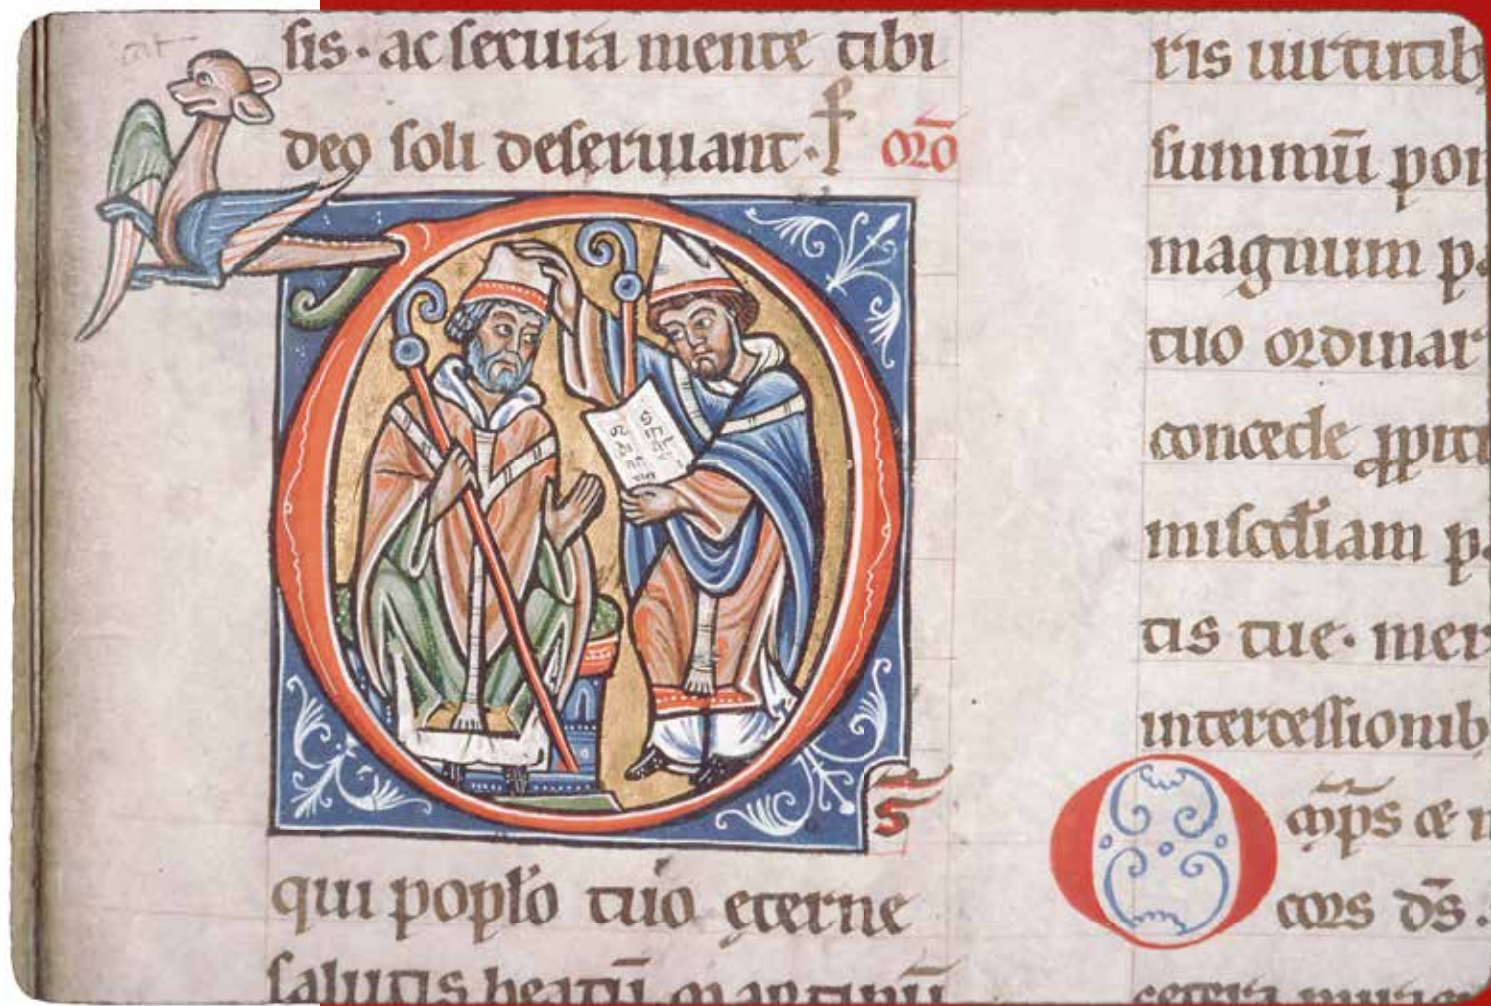 sis · ac secura mente tibi
deo soli deseruiant · orō
Ds̄
qui popło tuo ęterne
salutis beatū martinū
ris uirtutib
summū pon
magnum pa
tuo ordinar
concede ppiti
misc̄diam p
tis tue · mer
intercessionib
Omp̄s &
cors ds̄ ·